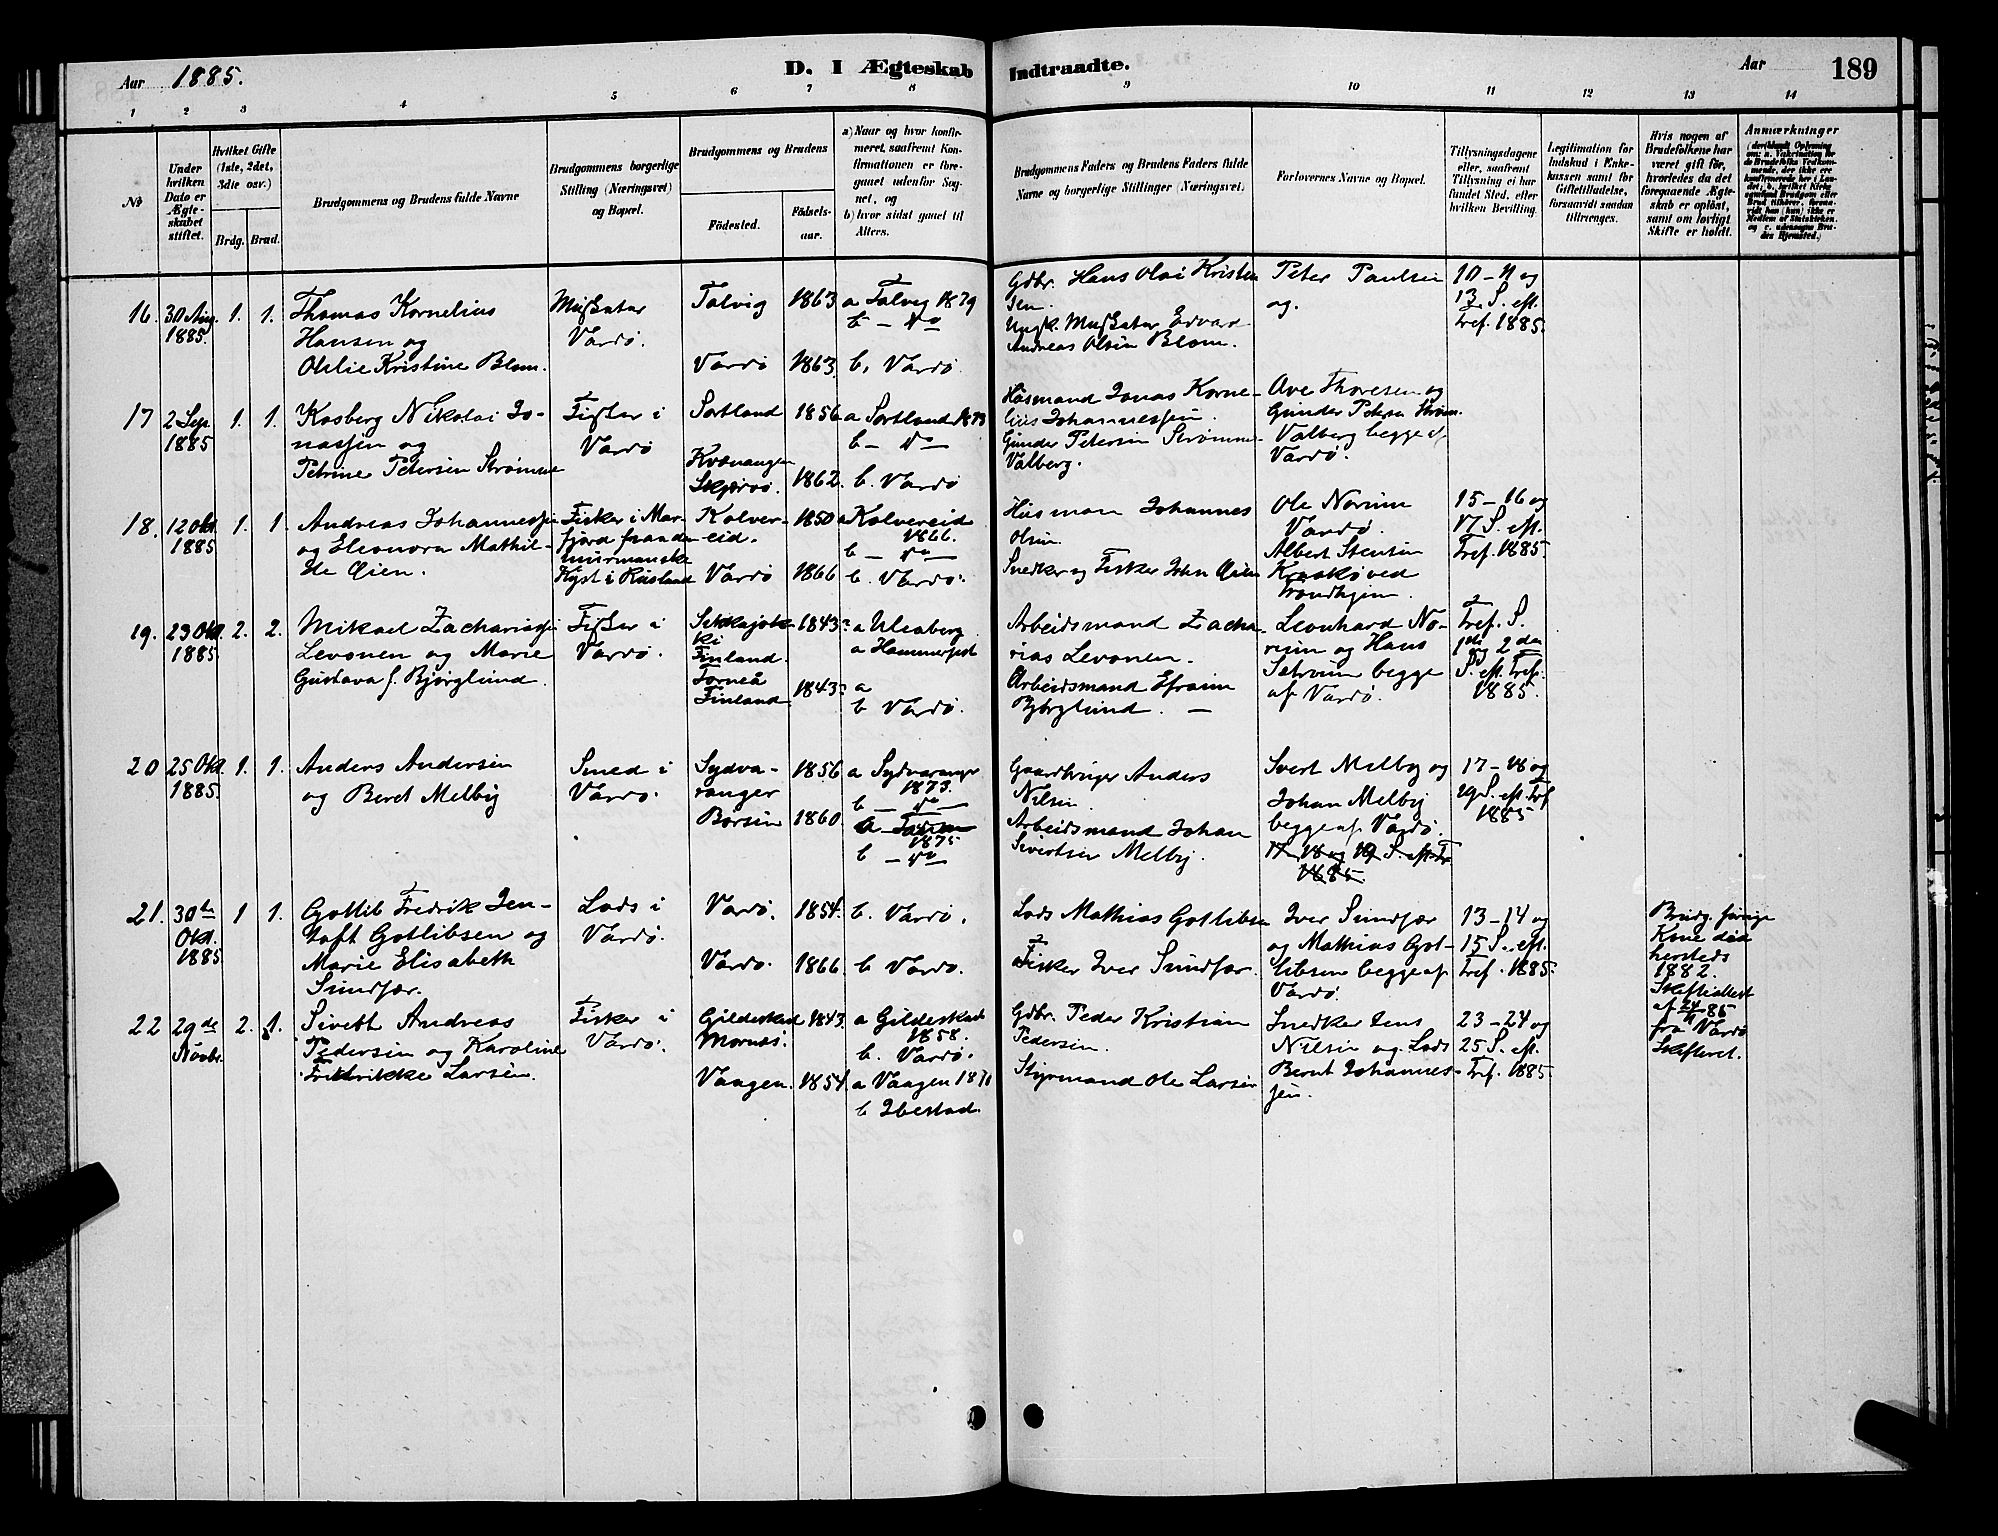 Aar 1885.
D. I Ægteskab Indtraadte.
Aar 189
1 2 3 4 5 6 7 8 9 10 11 12 13 14
No
Under hvilken Dato er Ægteskabet stiftet.
Hvilket Gifte (1ste, 2det, 3die osv.)
Brdg. Brud.
Brudgommens og Brudens fulde Navne
Brudgommens borgerlige Stilling (Næringsvei) og Bopæl.
Brudgommens og Brudens
Fødested.
Fødselsaar.
a) Naar og hvor konfirmeret, saafremt Konfirmationen er foregaaet udenfor Sognet, og
b) hvor sidst gaaet til Alters.
Brudgommens Faders og Brudens Faders fulde Navne og borgerlige Stillinger (Næringsvei).
Forlovernes Navne og Bopæl.
Tillysningsdagene eller, saafremt Tillysning ei har fundet Sted, efter hvilken Bevilling.
Legitimation for Indskud i Enkekassen samt for Giftetilladelse, forsaavidt saadan tiltrænges.
Hvis nogen af Brudefolkene har været gift før, hvorledes da det foregaaende Ægteskab er opløst, samt om lovligt Skifte er holdt.
Anmærkninger
16. 30 Aug. 1885. 1. 1.
Thomas Kornelius
Hansen og
Kristine Blom.
Vardø.
Talvig 1863 a Talvig 1879
b – do
Vardø 1863. b. Vardø.
Gdbr. Hans Olai Kristensen
Edvard
Andreas Olsen Blom.
Peter Paulsen
og.
10 – 11 og
12 S. eft.
Tref. 1885.
17 2 Sep. 1885 1. 1.
Kasberg Nikolai Jonassen og
Petrine Petersen Strømme
Fisker i
Vardø
Sortland 1856 a Sortland
b – do
Kvænangen
Skjervø. 1862. b. Vardø
Husmand Jonas Kornelius Johannessen.
Gunder Petersen Strømme
Valberg.
Thoresen og
Gunder Petersen Strøm
Valberg begge af
Vardø.
18. 12 Okt. 1885 1. 1.
Andreas Johannessen
og Eleonora Mathilde Øien.
Fisker i Marfjord paa den
murmanske
Kyst i Rusland
Kolvereid. 1850 a Kolvereid
1866.
b – do
Vardø 1866 b. Vardø.
Husman Johannes
Olsen.
Snedker og Fisker John Øien
Ole Norum
Vardø.
Albert Stensen
ved
Trondhjem.
15 – 16 og
17 S. eft.
Tref. 1885.
19. 23 Okt. 1885. 2. 2.
Mikael Zachariassen
Levonen og Marie
Gustava f. Bjørglund.
Fisker i
Vardø.
Finland.
Torneå
Finland
1843? a Uleaborg
a Hammerfest
1843? a
b Vardø.
Arbeidsmand Zacharias Levonen.
Arbeidsmand Efraim
Bjørglund. –
Leonhard Norum og Hans
begge
af Vardø.
Tref. S.
1ste og 2 den
S. eft. Tref.
1885.
20 25 Okt. 1885. 1. 1.
Anders Andersen
og Beret Melby
Smed i
Vardø.
Sydvaranger 1856 a Sydvaranger
1873.
b – do
Børsen 1860.
1875
b – do
Gaardbruger Anders
Nilsen.
Arbeidsmand Johan
Sivertsen Melby.
Sivert Melby og
Johan Melby
begge af Vardø.
17 – 18 og 19 S. eft. Tr.
1885.
17 – 18 og
19 S. eft. Tref
1885
21. 30te Okt. 1885 1 1.
Gottlib Fredrik Jentoft Gotlibsen og
Marie Elisabeth
Sundfær.
Lods i
Vardø.
Vardø. 1854. b. Vardø.
Vardø. 1866. b Vardø.
Lods Mathias Gotlibsen
Fisker Iver Sundfær.
Iver Sundfær
og Mathias Gotlibsen begge af
Vardø.
13 – 14 og
15 S. eft.
Tref. 1885.
Brudg. forrige
Kone død
hersteds
1882.
Skifteattest
af
fra Vardø
Skifteret.
22 29de Novbr. 2. 1.
Sivert Andreas
Pedersen og Karoline
Fredrikke Larsen.
Fisker i
Vardø.
Gildeskaal 1843. a Gildeskaal
1858.
b. Vardø.
Vaagen. 1854. a Vaagen 1871
b Ibestad.
Gdbr. Peder Kristian
Pedersen.
Styrmand Ole Larsen
Snedker Jens
Nilsen og Lods
Bernt Johannessen.
23 – 24 og
25 S. eft.
Tref. 1885.